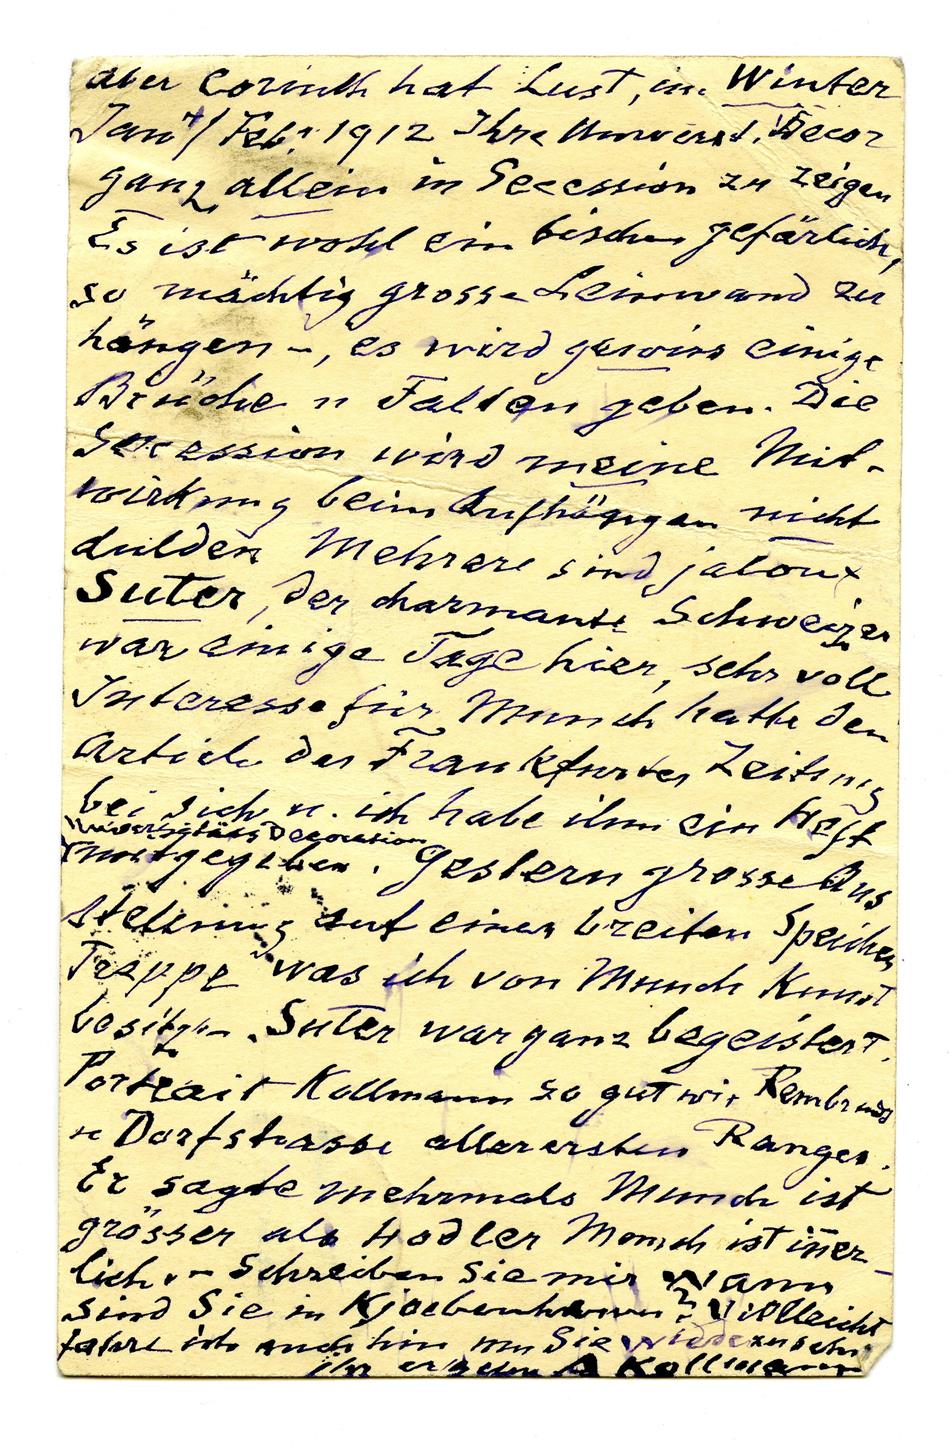 aber Corinth hat Lust, im Winter
Jan./Feb. 1912 Ihre Universt. Decor
ganz allein in Secession zu zeigen
Es ist wohl ein bischen gefärlich,
so mächtig grosse Leinwand zu
hängen –, es wird gewiss einige
Brüche u Falten geben. Die
Secession wird meine Mit-
wirkung beim Aufhängen nicht
dulden Mehrere sind jaloux
Suter, der charmante Schweizer
war einige Tage hier, sehr voll
Interesse für Munch hatte den
Artick der Frankfurter Zeitung
bei sich u. ich habe ihm ein Heft
Universitäts Decoration
mitgegeben. Gestern grosse Aus
stellung auf einer breiten Speicher
Treppe was ich von Munch Kunst
besitze. Suter war ganz begeistert.
Portrait Kollmann so gut wie Rembrandt
u Dorfstrasse allerersten Ranges.
Er sagte mehrmals Munch ist
grösser als Hodler Munch ist iner-
lich. – Schreiben Sie mir Wann
sind Sie in Kjoebenhavn? Villeicht
fahre ich auch hin um Sie wiederzusehn
Ihr ergeben A Kollmann